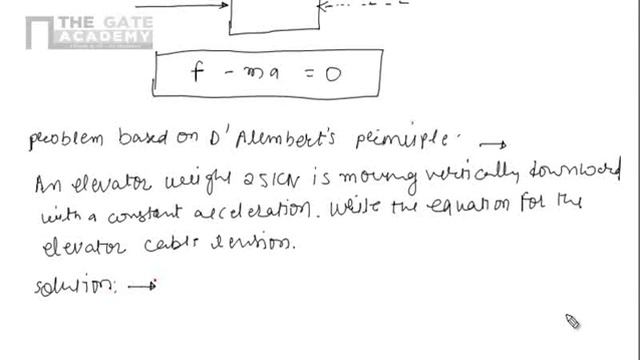 THE GATE
ACADEMY
f - ma = 0
problem based on D'Alembert's principle. →
An elevator weight 25KN is moving vertically downward
with a constant acceleration. Write the equation for the
elevator cable tension.
solution: →